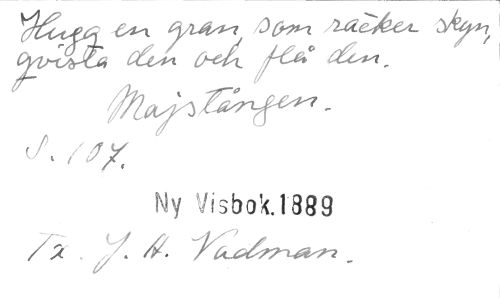 Hugg en gran, som räcker skyn,
qvista den och flå den.
Majstången.
S. 107.
Ny Visbok.1889
Tx. J. A. Wadman.